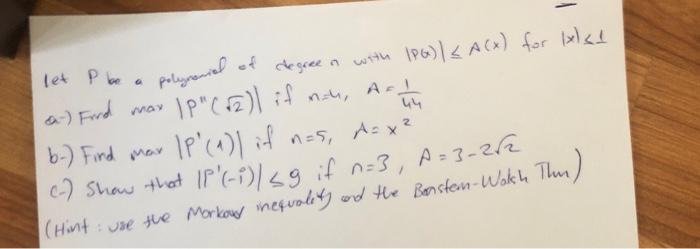 let P be a polynomial of degree n with |P(x)| ≤ A(x) for |x| ≤ 1
a-) Find max |P"(√2)| if n=4, A = 1/44
b-) Find max |P'(1)| if n=5, A = x²
c-) Show that |P'(-i)| ≤ 9 if n=3, A = 3-2√2
(Hint: use the Markov inequality and the Bernstein-Walsh Thm)